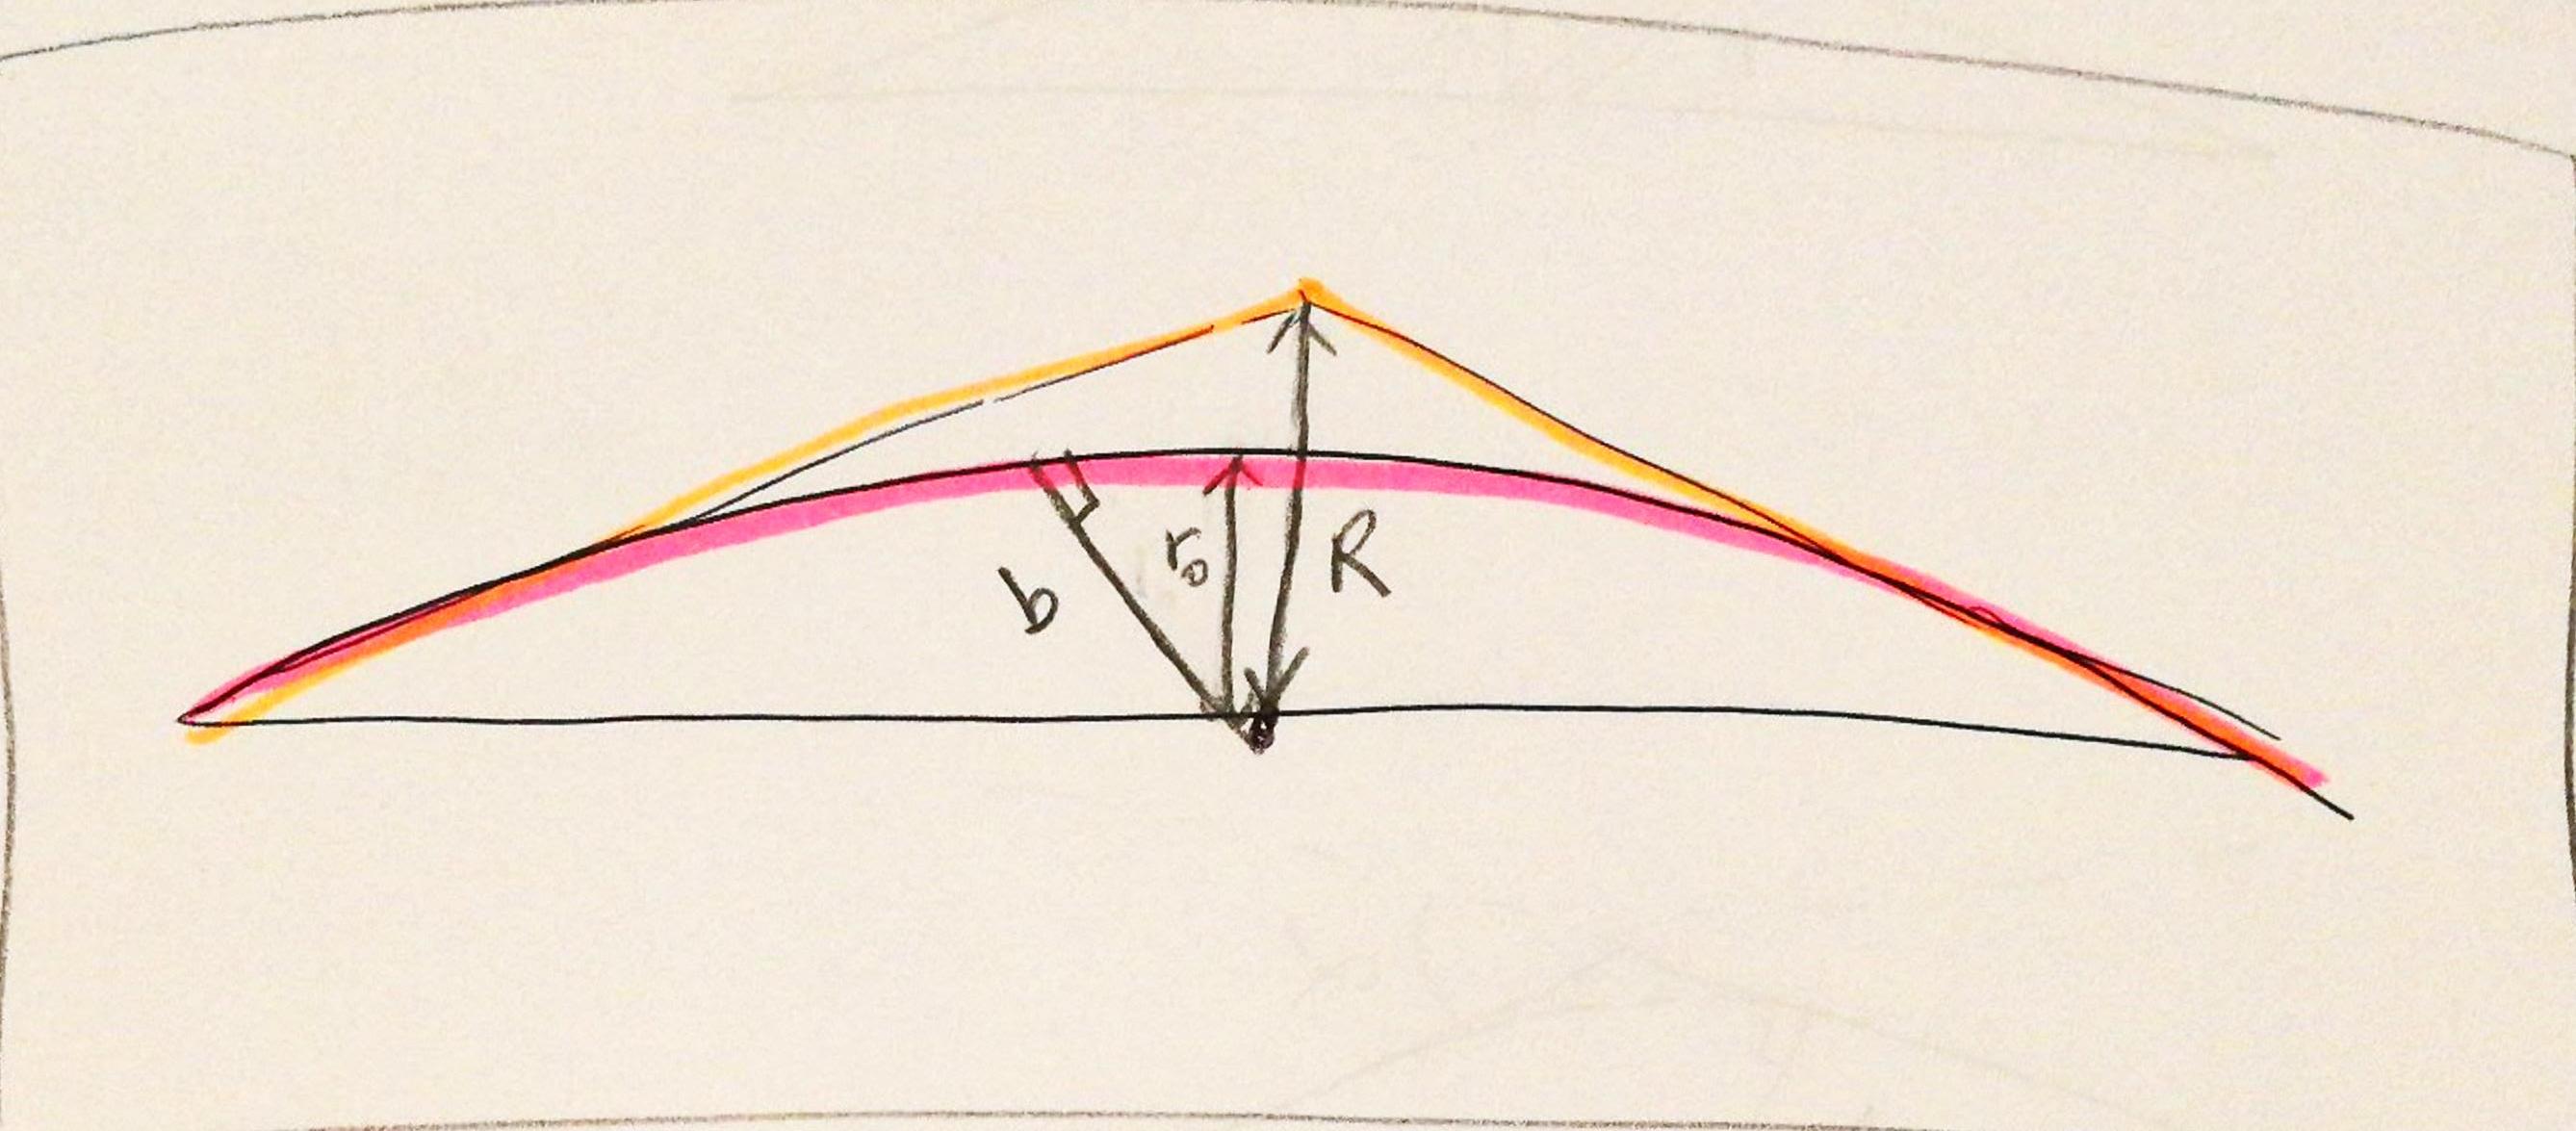 b
r₀
R